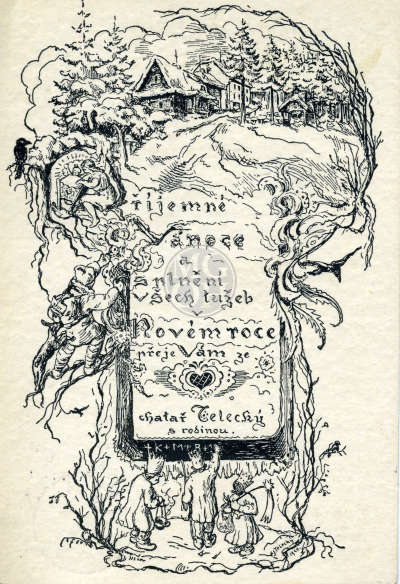 Příjemné
Vánoce
a
splnění
všech tužeb
Novém roce
přeje Vám ze
chatař Telecký
s rodinou.
+K+M+B